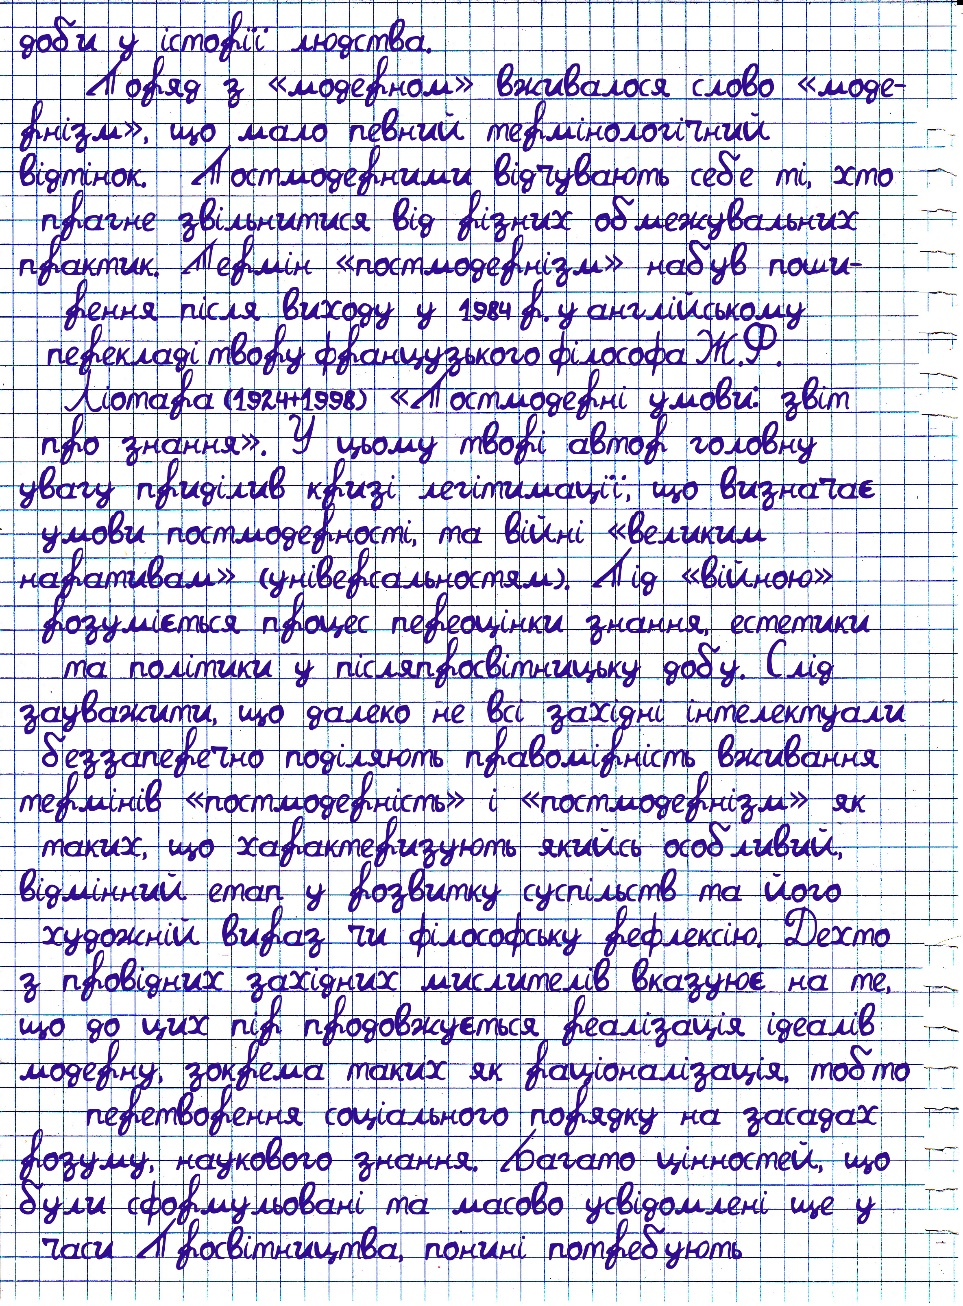 доби у історії людства.
Поряд з «модерном» вживалося слово «моде-
рнізм», що мало певний термінологічний
відтінок. Постмодерними відчувають себе ті, хто
прагне звільнитися від різних обмежувальних
практик. Термін «постмодернізм» набув поши-
рення після виходу у 1984 р. у англійському
перекладі твору французького філософа Ж.Ф.
Ліотара (1924+1998) «Постмодерні умови: звіт
про знання». У цьому творі автор головну
увагу приділив кризі легітимації, що визначає
умови постмодерності, та війні «великим
наративам» (універсальностям). Під «війною»
розуміється процес переоцінки знання, естетики
та політики у післяпросвітницьку добу. Слід
зауважити, що далеко не всі західні інтелектуали
беззаперечно поділяють правомірність вживання
термінів «постмодерність» і «постмодернізм» як
таких, що характеризують якийсь особливий,
відмінний етап у розвитку суспільств та його
художній вираз чи філософську рефлексію. Дехто
з провідних західних мислителів вказуює на те,
що до цих пір продовжується реалізація ідеалів
модерну, зокрема таких як раціоналізація, тобто
перетворення соціального порядку на засадах
розуму, наукового знання. Багато цінностей, що
були сформульовані та масово усвідомлені ще у
часи Просвітництва, понині потребують